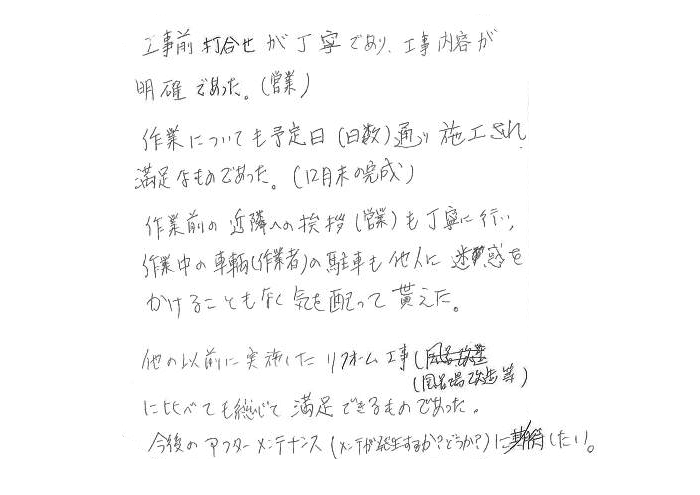 工事前打合せが丁寧であり、工事内容が
明確であった。(営業)
作業についても予定日(日数)通り施工され
満足なものであった。(12月末の完成)
作業前の近隣への挨拶(営業)も丁寧に行い、
作業中の車輌(作業者)の駐車も他人に迷惑を
かけることもなく気を配って貰えた。
他の以前に実施したリフォーム工事(
(風呂場改造等)
に比べても総じて満足できるものであった。
今後のアフターメンテナンス(メンテが発生するか?どうか?)に期待したい。